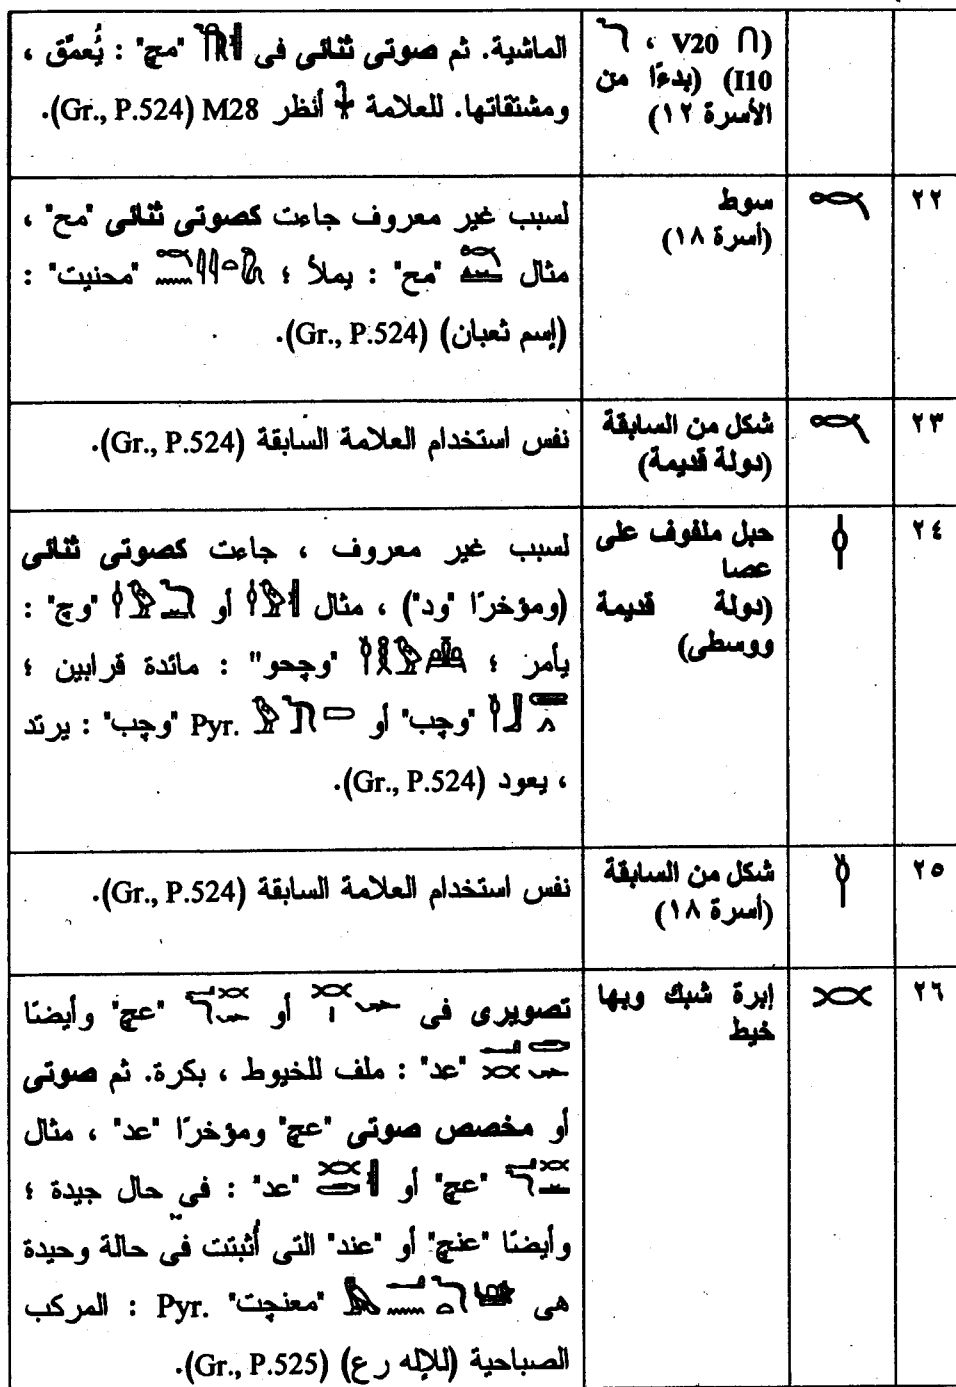 (∩ V20 ، I10) (بدءًا من الأسرة ١٢)
الماشية. ثم صوتى ثنائى فى "مچ" : يُعمَّق ،
ومشتقاتها. للعلامة أنظر M28 (Gr., P.524).
٢٢
سوط
(أسرة ١٨)
لسبب غير معروف جاءت كصوتى ثنائى "مح" ،
مثال "مح" : يملأ ؛ "محنيت" :
(إسم ثعبان) (Gr., P.524).
٢٣
شكل من السابقة
(دولة قديمة)
نفس استخدام العلامة السابقة (Gr., P.524).
٢٤
حبل ملفوف على
عصا
(دولة قديمة
ووسطى)
لسبب غير معروف ، جاءت كصوتى ثنائى
(ومؤخرًا "ود") ، مثال أو "وچ" :
يأمر ؛ "وچحو" : مائدة قرابين ؛
"وچب" أو Pyr. "وچب" : يرتد
، يعود (Gr., P.524).
٢٥
شكل من السابقة
(أسرة ١٨)
نفس استخدام العلامة السابقة (Gr., P.524).
٢٦
إبرة شبك وبها
خيط
تصويرى فى أو "عچ" وأيضنا
"عد" : ملف للخيوط ، بكرة. ثم صوتى
أو مخصص صوتى "عچ" ومؤخرًا "عد" ، مثال
"عچ" أو "عد" : فى حال جيدة ؛
وأيضنا "عنچ" أو "عند" التى أُثبتت فى حالة وحيدة
هى "معنچت" Pyr. : المركب
الصباحية (للإله رع) (Gr., P.525).